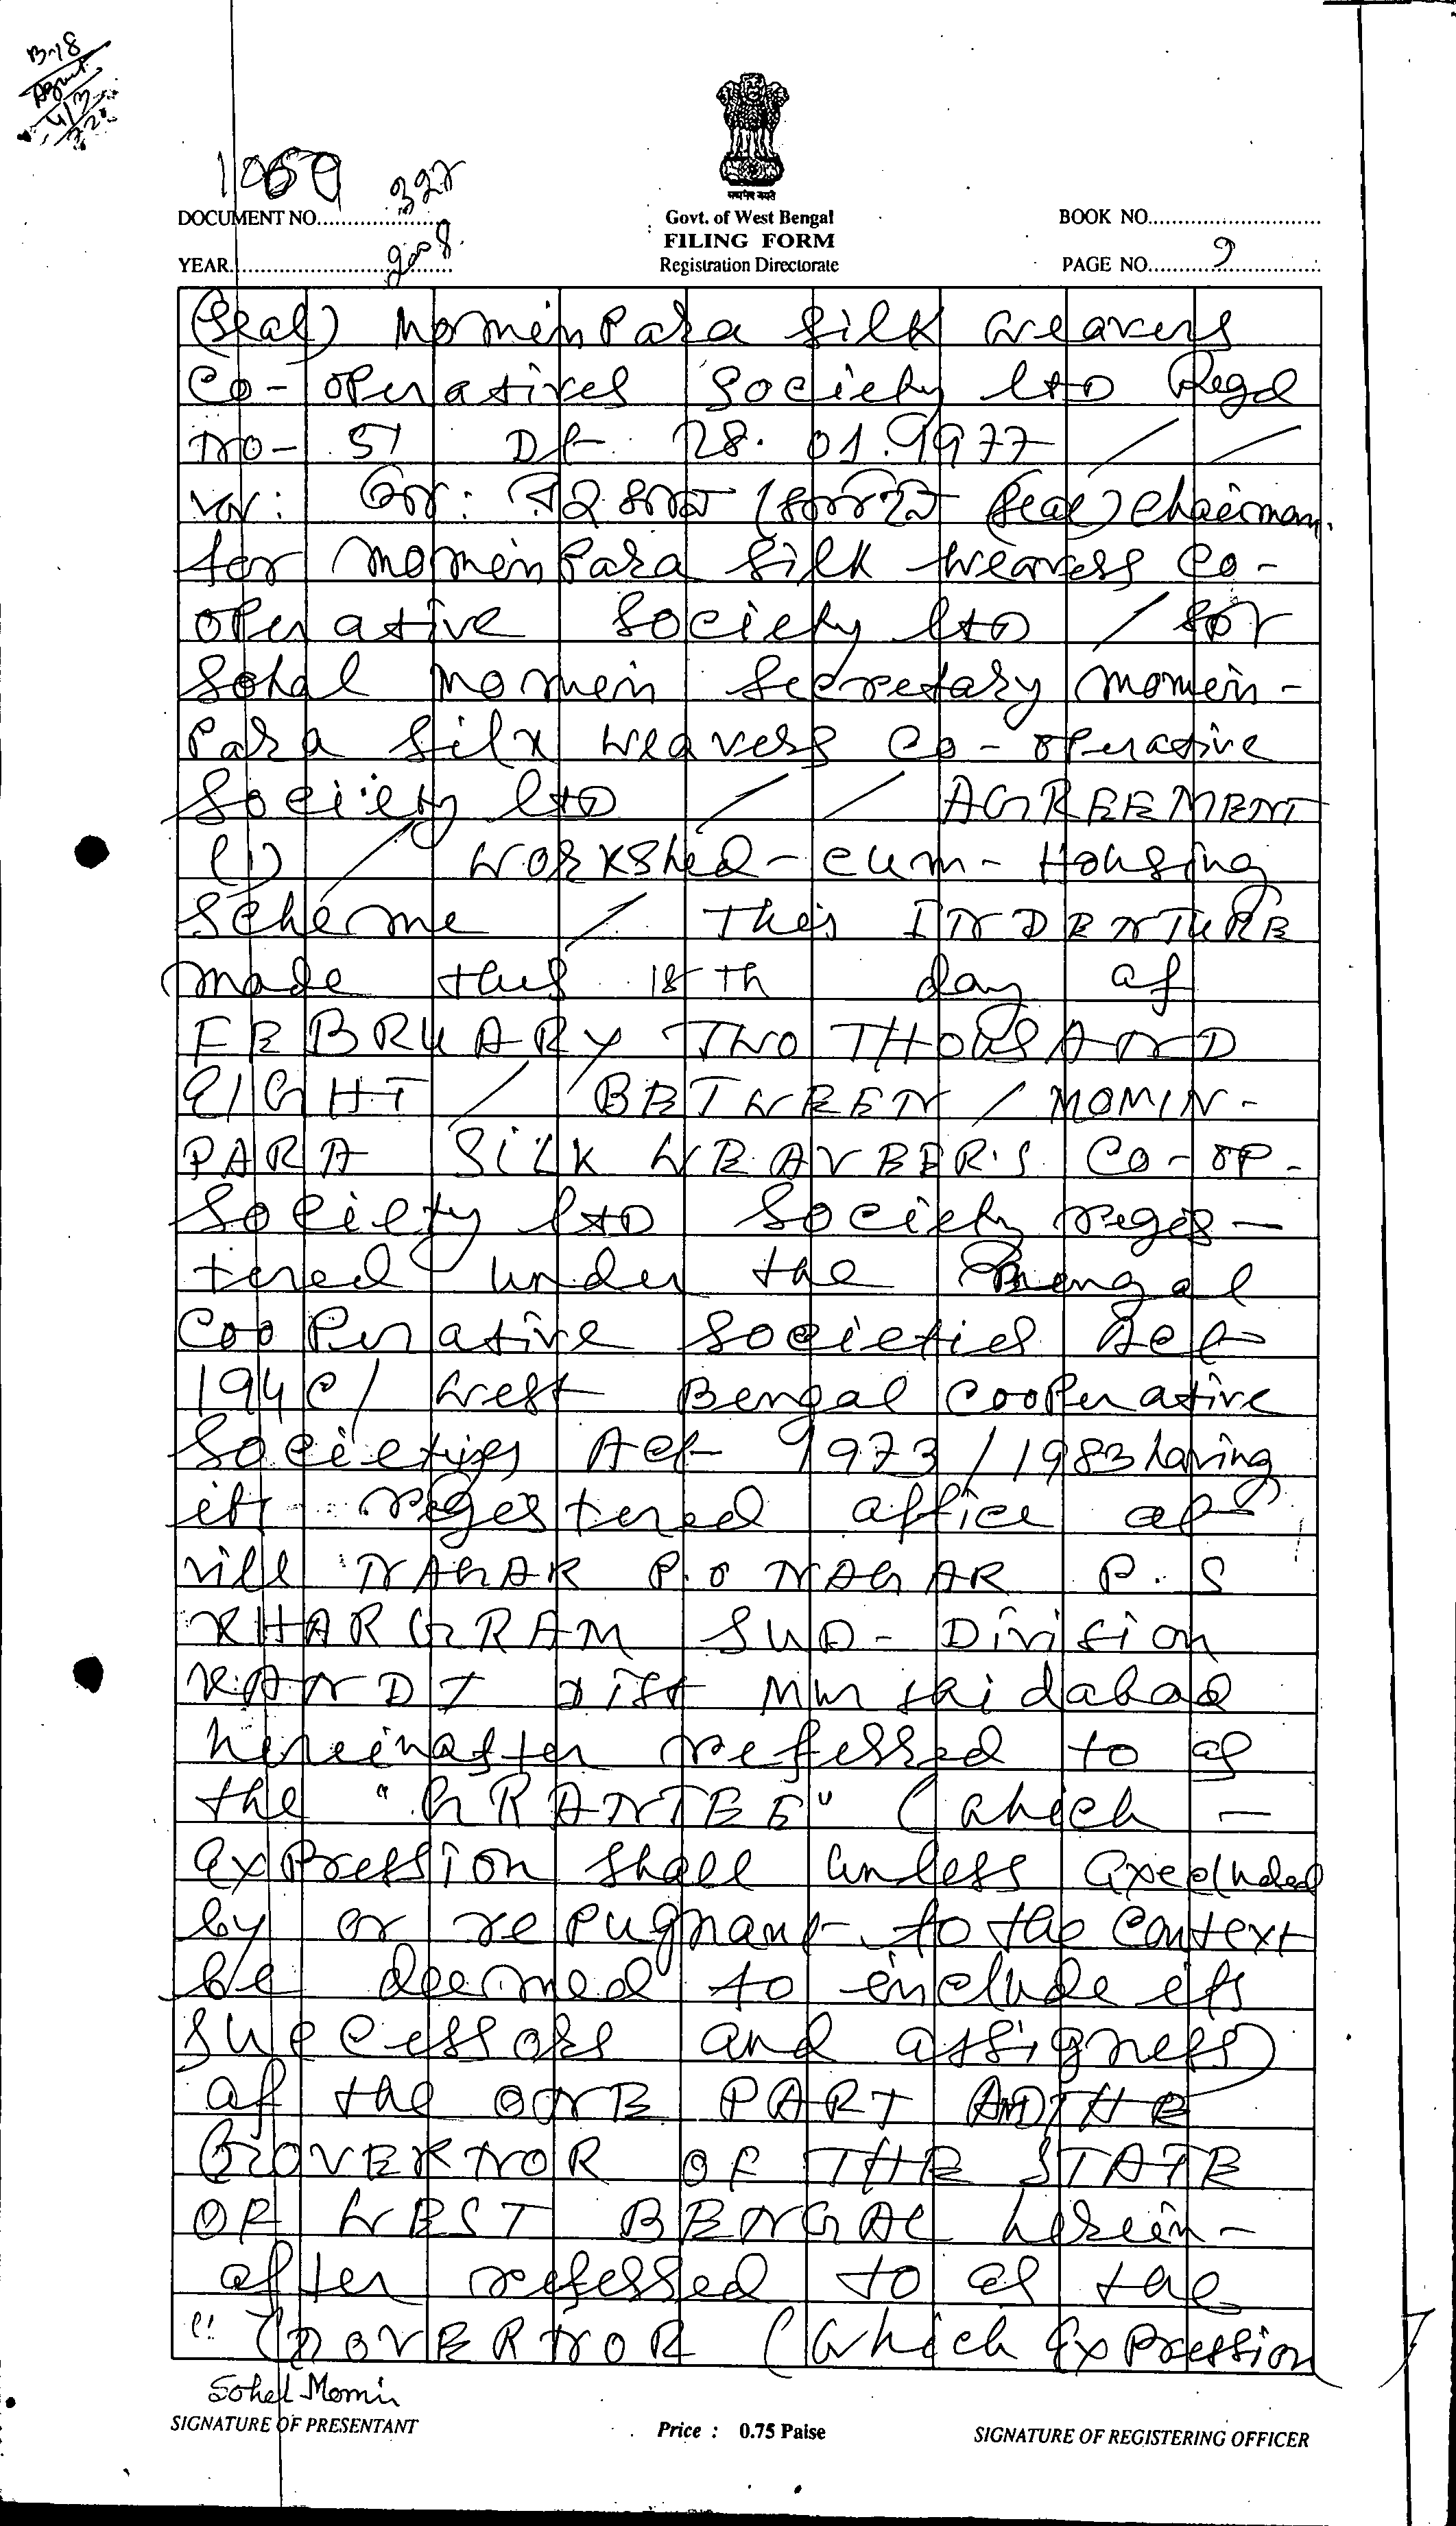 B-18
1069 322
DOCUMENT NO.
YEAR. 2008.
सत्यमेव जयते
Govt. of West Bengal
FILING FORM
Registration Directorate
BOOK NO.
PAGE NO. 2
(Seal) Momenpara Silk Weavers
Co-operatives Society Ltd Regd
No- 51 Dt- 28.01.1977 / /
(Seal) Chairman.
for Momenpara Silk Weavers Co-
operative Society Ltd /
Sohal Momen Secretary Momen-
para Silk Weavers Co-operative
Society Ltd / / AGREEMENT
(1) / Workshed-cum-Housing
Scheme / This INDENTURE
made this 18th day of
FEBRUARY TWO THOUSAND
EIGHT / BETWEEN / MOMIN-
PARA SILK WEAVEER'S CO-OP-
Society Ltd Society regis-
tered under the Bengal
Cooperative Societies Act
1940/ West Bengal Cooperative
Societies Act 1973/1983 having
its registered office at
vill NAGAR P.O NAGAR P.S
KHARGRAM SUB-Division
KANDI Dist Murshidabad
hereinafter referred to as
the "GRANTEE" (which -
expression shall unless excluded
by or repugnant to the context
be deemed to include its
successors and assignees)
of the ONE PART AND THE
GOVERNOR OF THE STATE
OF WEST BENGAL herein-
after referred to as the
"GOVERNOR (which expression
Sohel Momin
SIGNATURE OF PRESENTANT
Price : 0.75 Paise
SIGNATURE OF REGISTERING OFFICER